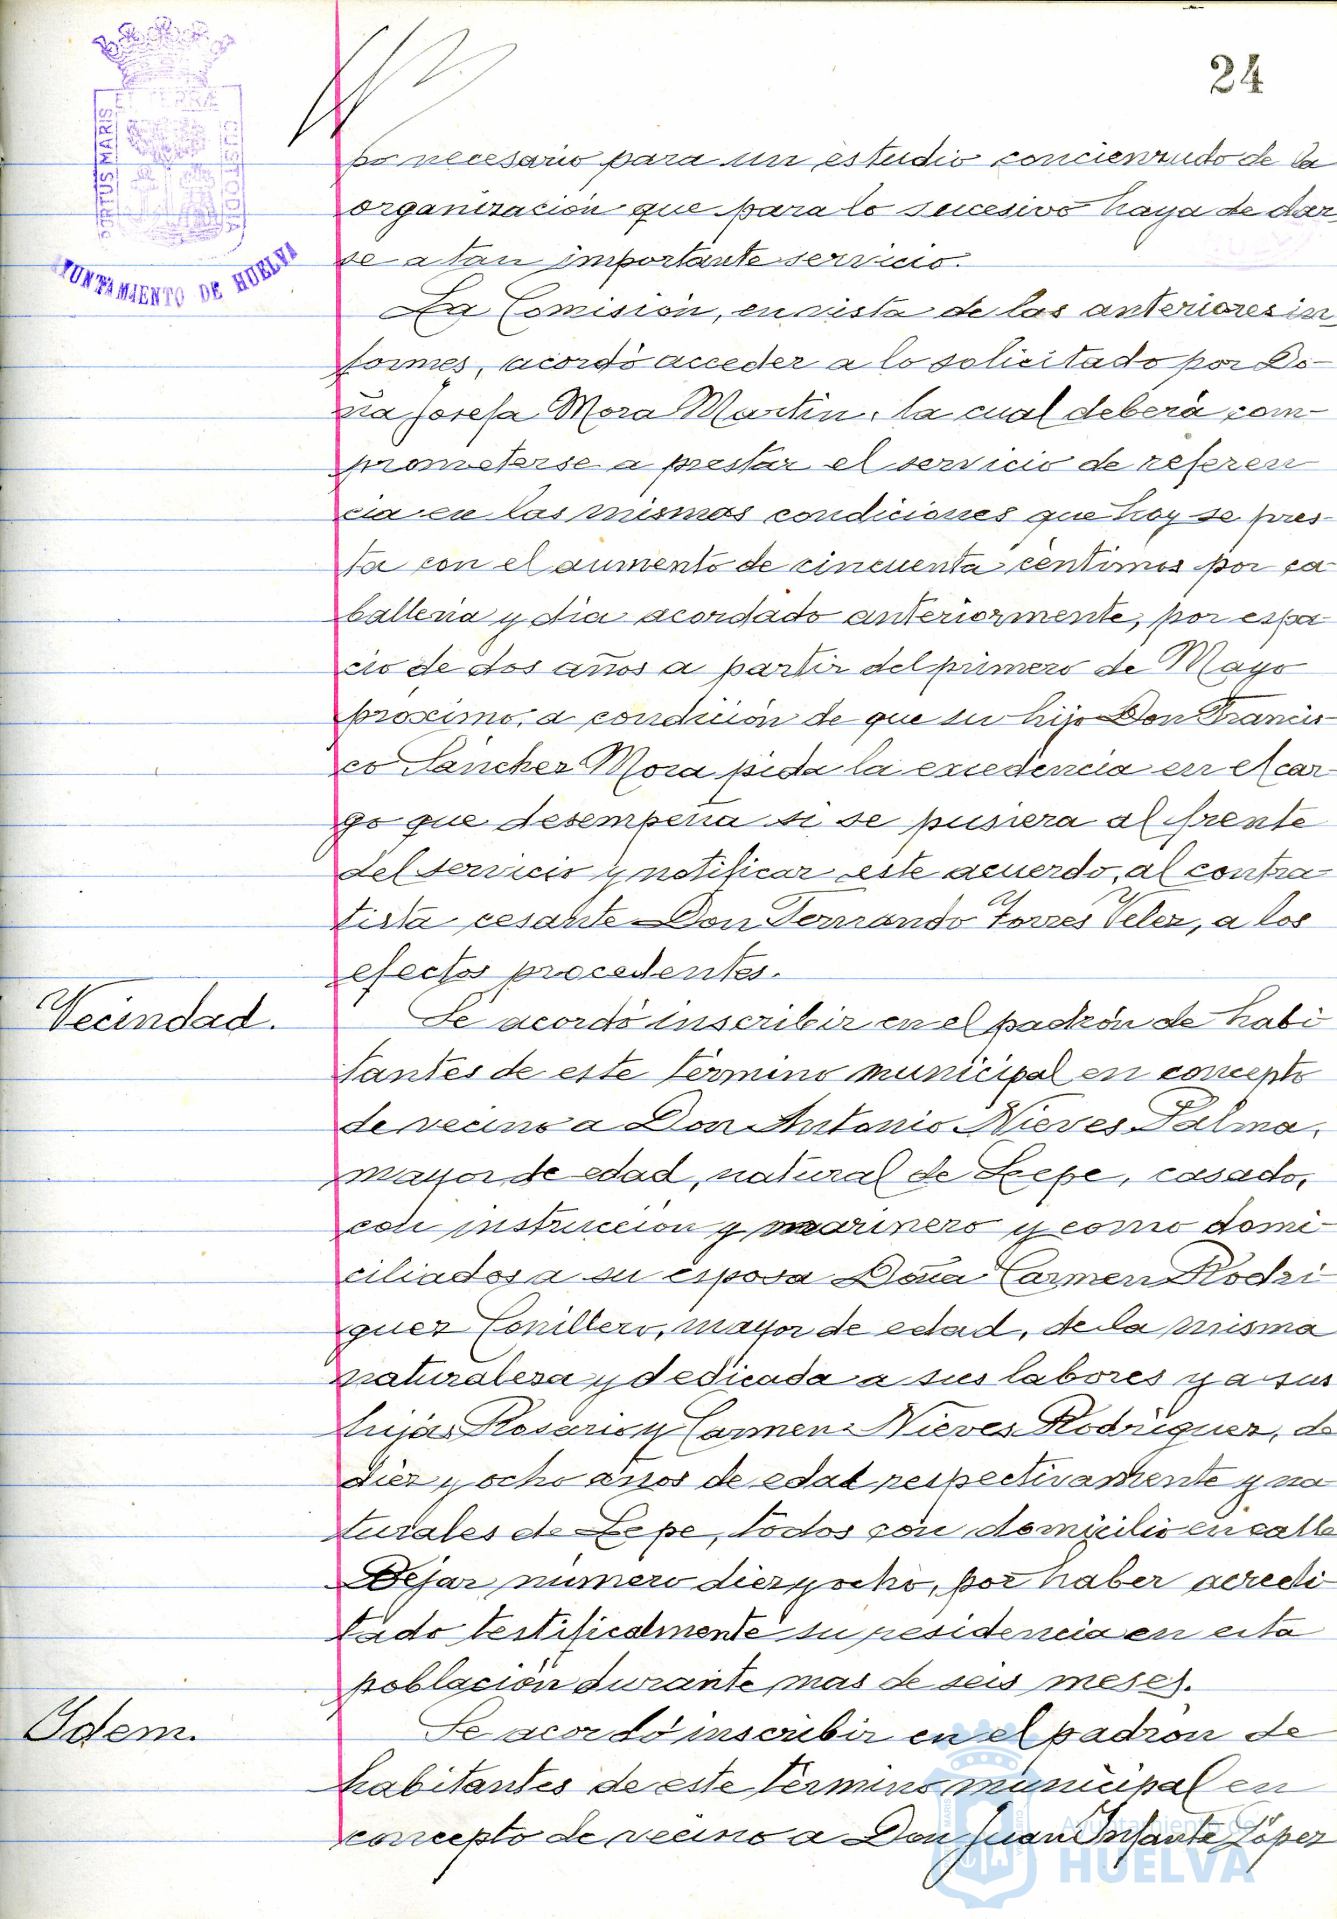 24
PORTUS MARIS ET TERRÆ CUSTODIA
AYUNTAMIENTO DE HUELVA
po necesario para un estudio concienzudo de la
organización que para lo sucesivo haya de dar-
se a tan importante servicio.
La Comisión, en vista de los anteriores in-
formes, acordó acceder a lo solicitado por Do-
ña Josefa Mora Martin, la cual deberá com-
prometerse a prestar el servicio de referen
cia en las mismas condiciones que hoy se pres-
ta con el aumento de cincuenta céntimos por ca-
balleria y dia acordado anteriormente, por espa-
cio de dos años a partir del primero de Mayo
próximo, a condición de que su hijo Don Francis-
co Sánchez Mora pida la excedencia en el car-
go que desempeña si se pusiera al frente
del servicio y notificar este acuerdo, al contra-
tista cesante Don Fernando Torres Velez, a los
efectos procedentes.
Vecindad.
Se acordó inscribir en el padrón de habi-
tantes de este término municipal en concepto
de vecino a Don Antonio Nieves Palma,
mayor de edad, natural de Lepe, casado,
con instrucción y marinero y como domi-
ciliados a su esposa Doña Carmen Rodri-
guez Conillero, mayor de edad, de la misma
naturaleza y dedicada a sus labores y a sus
hijas Rosario y Carmen Nieves Rodriguez, de
diez y ocho años de edad respectivamente y na-
turales de Lepe, todos con domicilio en calle
Bejar número diez y ocho, por haber acredi-
tado testificalmente su residencia en esta
población durante mas de seis meses.
Ydem.
Se acordó inscribir en el padrón de
habitantes de este término municipal en
concepto de vecino a Don Juan Infante López
Ayuntamiento de
HUELVA